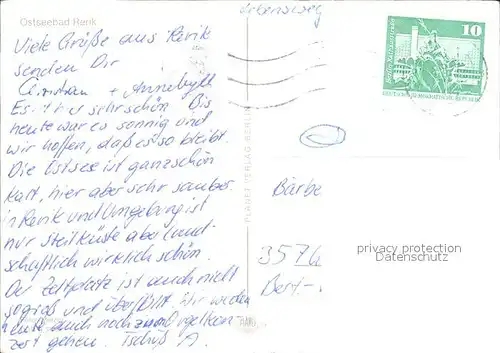 Ostseebad Rerik
Viele Grüße aus Rerik
senden Dir
Christian + Annebyll
Es ist hier sehr schön. Bis
heute war es sonnig und
wir hoffen, daß es so bleibt.
Die Ostsee ist ganz schön
kalt, hier aber sehr sauber.
in Rerik und Umgebung ist
nur Steilküste aber land-
schaftlich wirklich schön.
Der Zeltplatz ist auch nicht
so groß und überfüllt. Wir werden
heute auch noch zum Orgelkon-
zert gehen. Tschüß A.
PLANET VERLAG BERLIN
10
DEUTSCHE DEMOKRATISCHE REPUBLIK
Bärbe
3574
privacy protection
Datenschutz